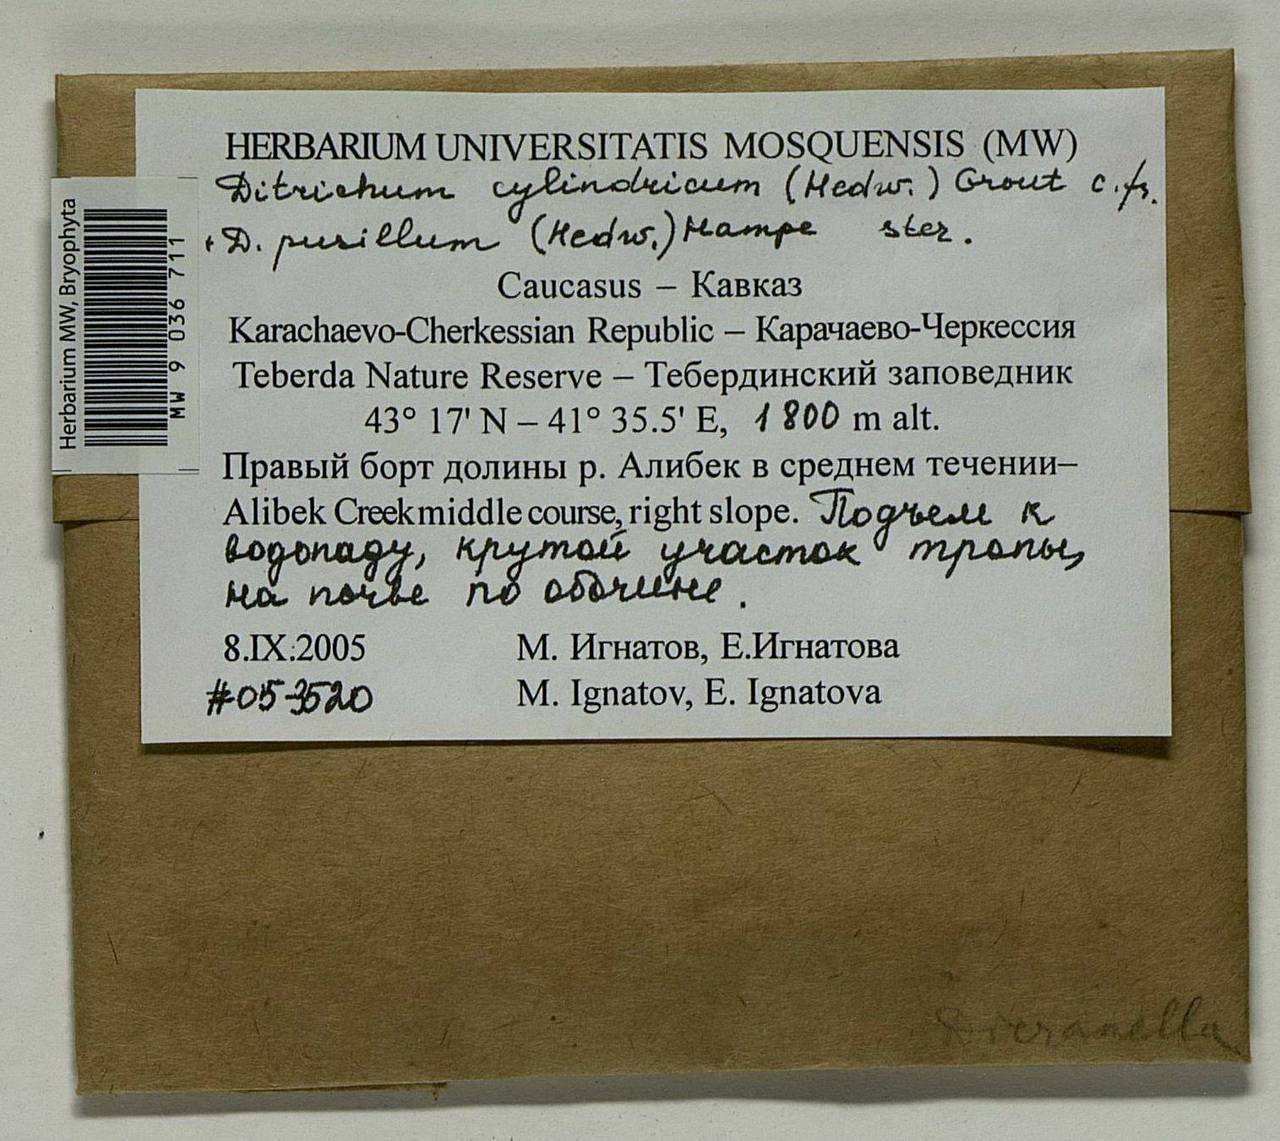 HERBARIUM UNIVERSITATIS MOSQUENSIS (MW)
Ditrichum cylindricum (Hedw.) Grout c. fr.
+ D. pusillum (Hedw.) Hampe ster.
Caucasus – Кавказ
Karachaevo-Cherkessian Republic – Карачаево-Черкессия
Teberda Nature Reserve – Тебердинский заповедник
43° 17' N – 41° 35.5' E, 1800 m alt.
Правый борт долины р. Алибек в среднем течении–
Alibek Creek middle course, right slope. Подъем к
водопаду, крутой участок тропы,
на почве по обочине.
8.IX.2005
М. Игнатов, Е.Игнатова
#05-3520
M. Ignatov, E. Ignatova
Herbarium MW, Bryophyta
MW 9 036 711
Dicranella